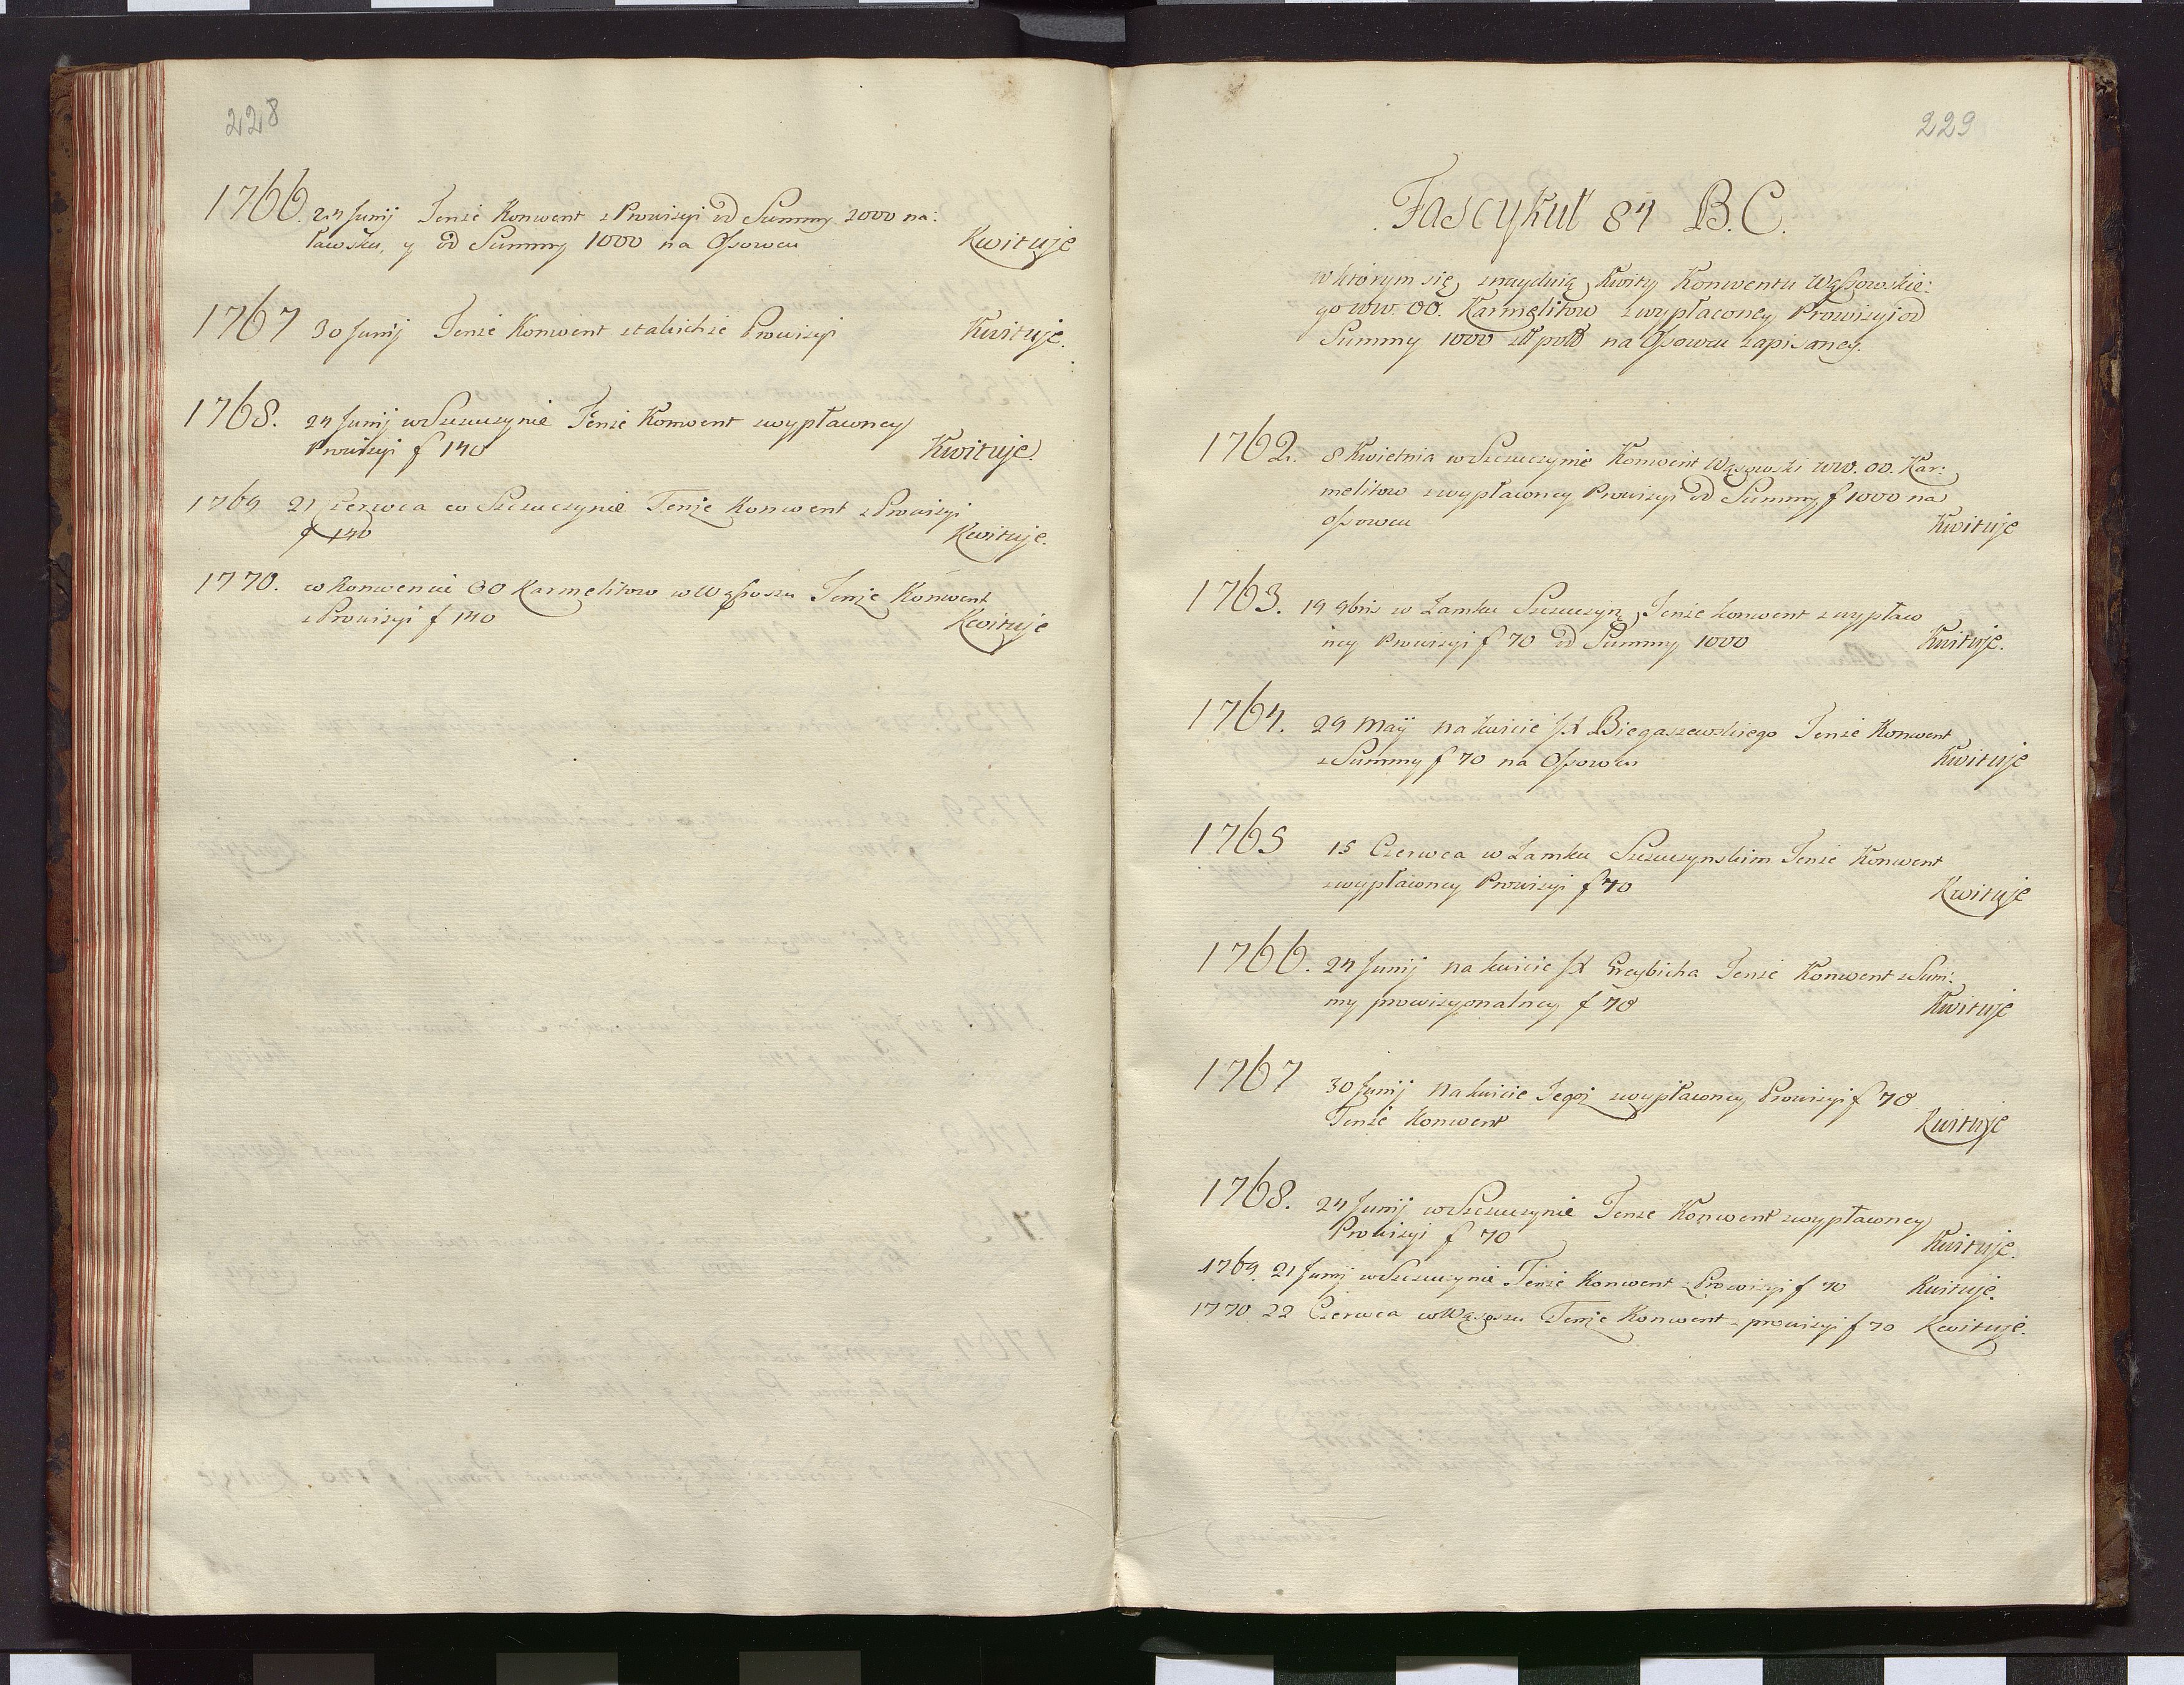 228
1766. 24 Junij Tenże Konwent z Prowizyi od Summy 2000 na
Ławsku, y od Summy 1000 na Ossowcu Kwituje
1767 30 Junij Tenże Konwent z takichże Prowizyi Kwituje.
1768. 24 Junij w Szczuczynie Tenże Konwent z wypłaconey
Prowizyi f 140 Kwituje.
1769 21 Czerwca w Szczuczynie Tenże Konwent z Prowizyi
f 140 Kwituje.
1770. w Konwencie OO Karmelitow w Wąssoszu Tenże Konwent
z Prowizyi f 140 Kwituje
229
Fascykuł 84 B.C.
w którym się znayduią Kwity Konwentu Wąssowskie:
go WW. OO. Karmelitow z wypłaconey Prowizyi od
Summy 1000 zł pol na Ossowcu zapisaney.
1762. 8 Kwietnia w Szczuczynie Konwent Wąsowski WW. OO. Kar:
melitow z wypłaconey Prowizyi od Summy f 1000 na
Ossowcu Kwituje
1763. 19 9bris w Zamku Szczuczyn Tenże konwent z wypłaco
ney Prowizyi f 70 od Summy 1000 Kwituje.
1764. 29 Maij na kwicie JX Biegaszewskiego Tenże Konwent
z Summy f 70 na Ossowcu Kwituje
1765 15 Czerwca w Zamku Szczuczynskim Tenże Konwent
z wypłaconey Prowizyi f 70 Kwituje
1766. 24 Junij na kwicie JX Tenże Konwent z Sum:
my prowizyonalney f 70 Kwituje
1767 30 Junij Na kwicie Tegoż z wypłaconey Prowizyi f 70
Tenże Konwent Kwituje
1768. 24 Junij w Szczuczynie Tenże Konwent z wypłaconey
Prowizyi f 70 Kwituje.
1769. 21 Junij w Szczuczynie Tenże Konwent z Prowizyi f 70 Kwituje.
1770. 22 Czerwca w Wąsoszu Tenże Konwent z prowizyi f 70 Kwituje.